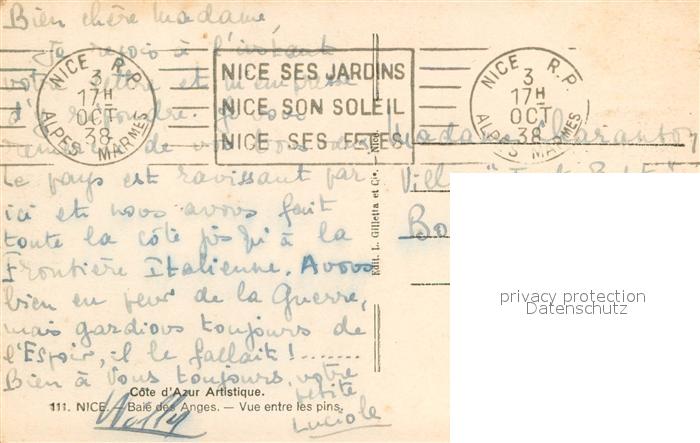 Bien chère Madame,
Je reçois à l'instant
votre lettre et m'empresse
d'y répondre. Je vous
remercie de vos bons
le pays est ravissant par
ici et nous avons fait
toute la côte jusqu'à la
Frontière Italienne. Avons
bien eu peur de la Guerre,
mais gardions toujours de
l'Espoir, il le fallait! .......
Bien à Vous toujours, votre
petite
Luciole
Willy
Côte d'Azur Artistique.
111. NICE. — Baie des Anges. — Vue entre les pins.
Edit. L. Gilletta et Cie, Nice
NICE R.P.
3
17H
OCT
38
ALPES MARMES
NICE SES JARDINS
NICE SON SOLEIL
NICE SES FETES
NICE R.P.
3
17H
OCT
38
ALPES MARMES
Madame
Villa
privacy protection
Datenschutz